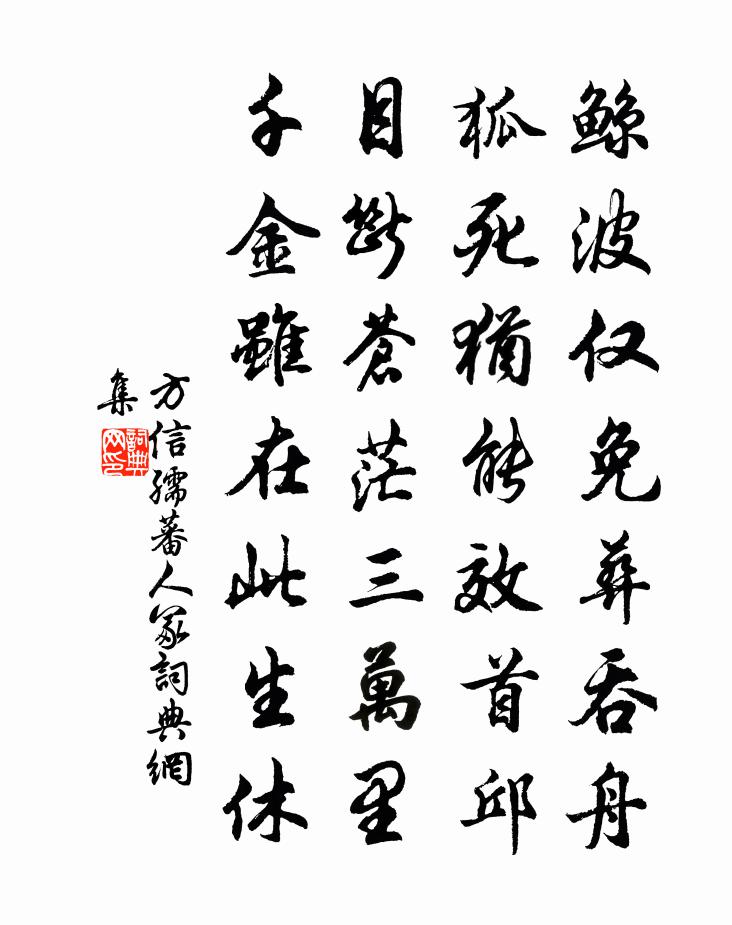 鲸波仅免葬吞舟
狐死猶能效首邱
目斷蒼茫三萬里
千金雖在此生休
方信孺蕃人冢詞典網
集
詞典
网印